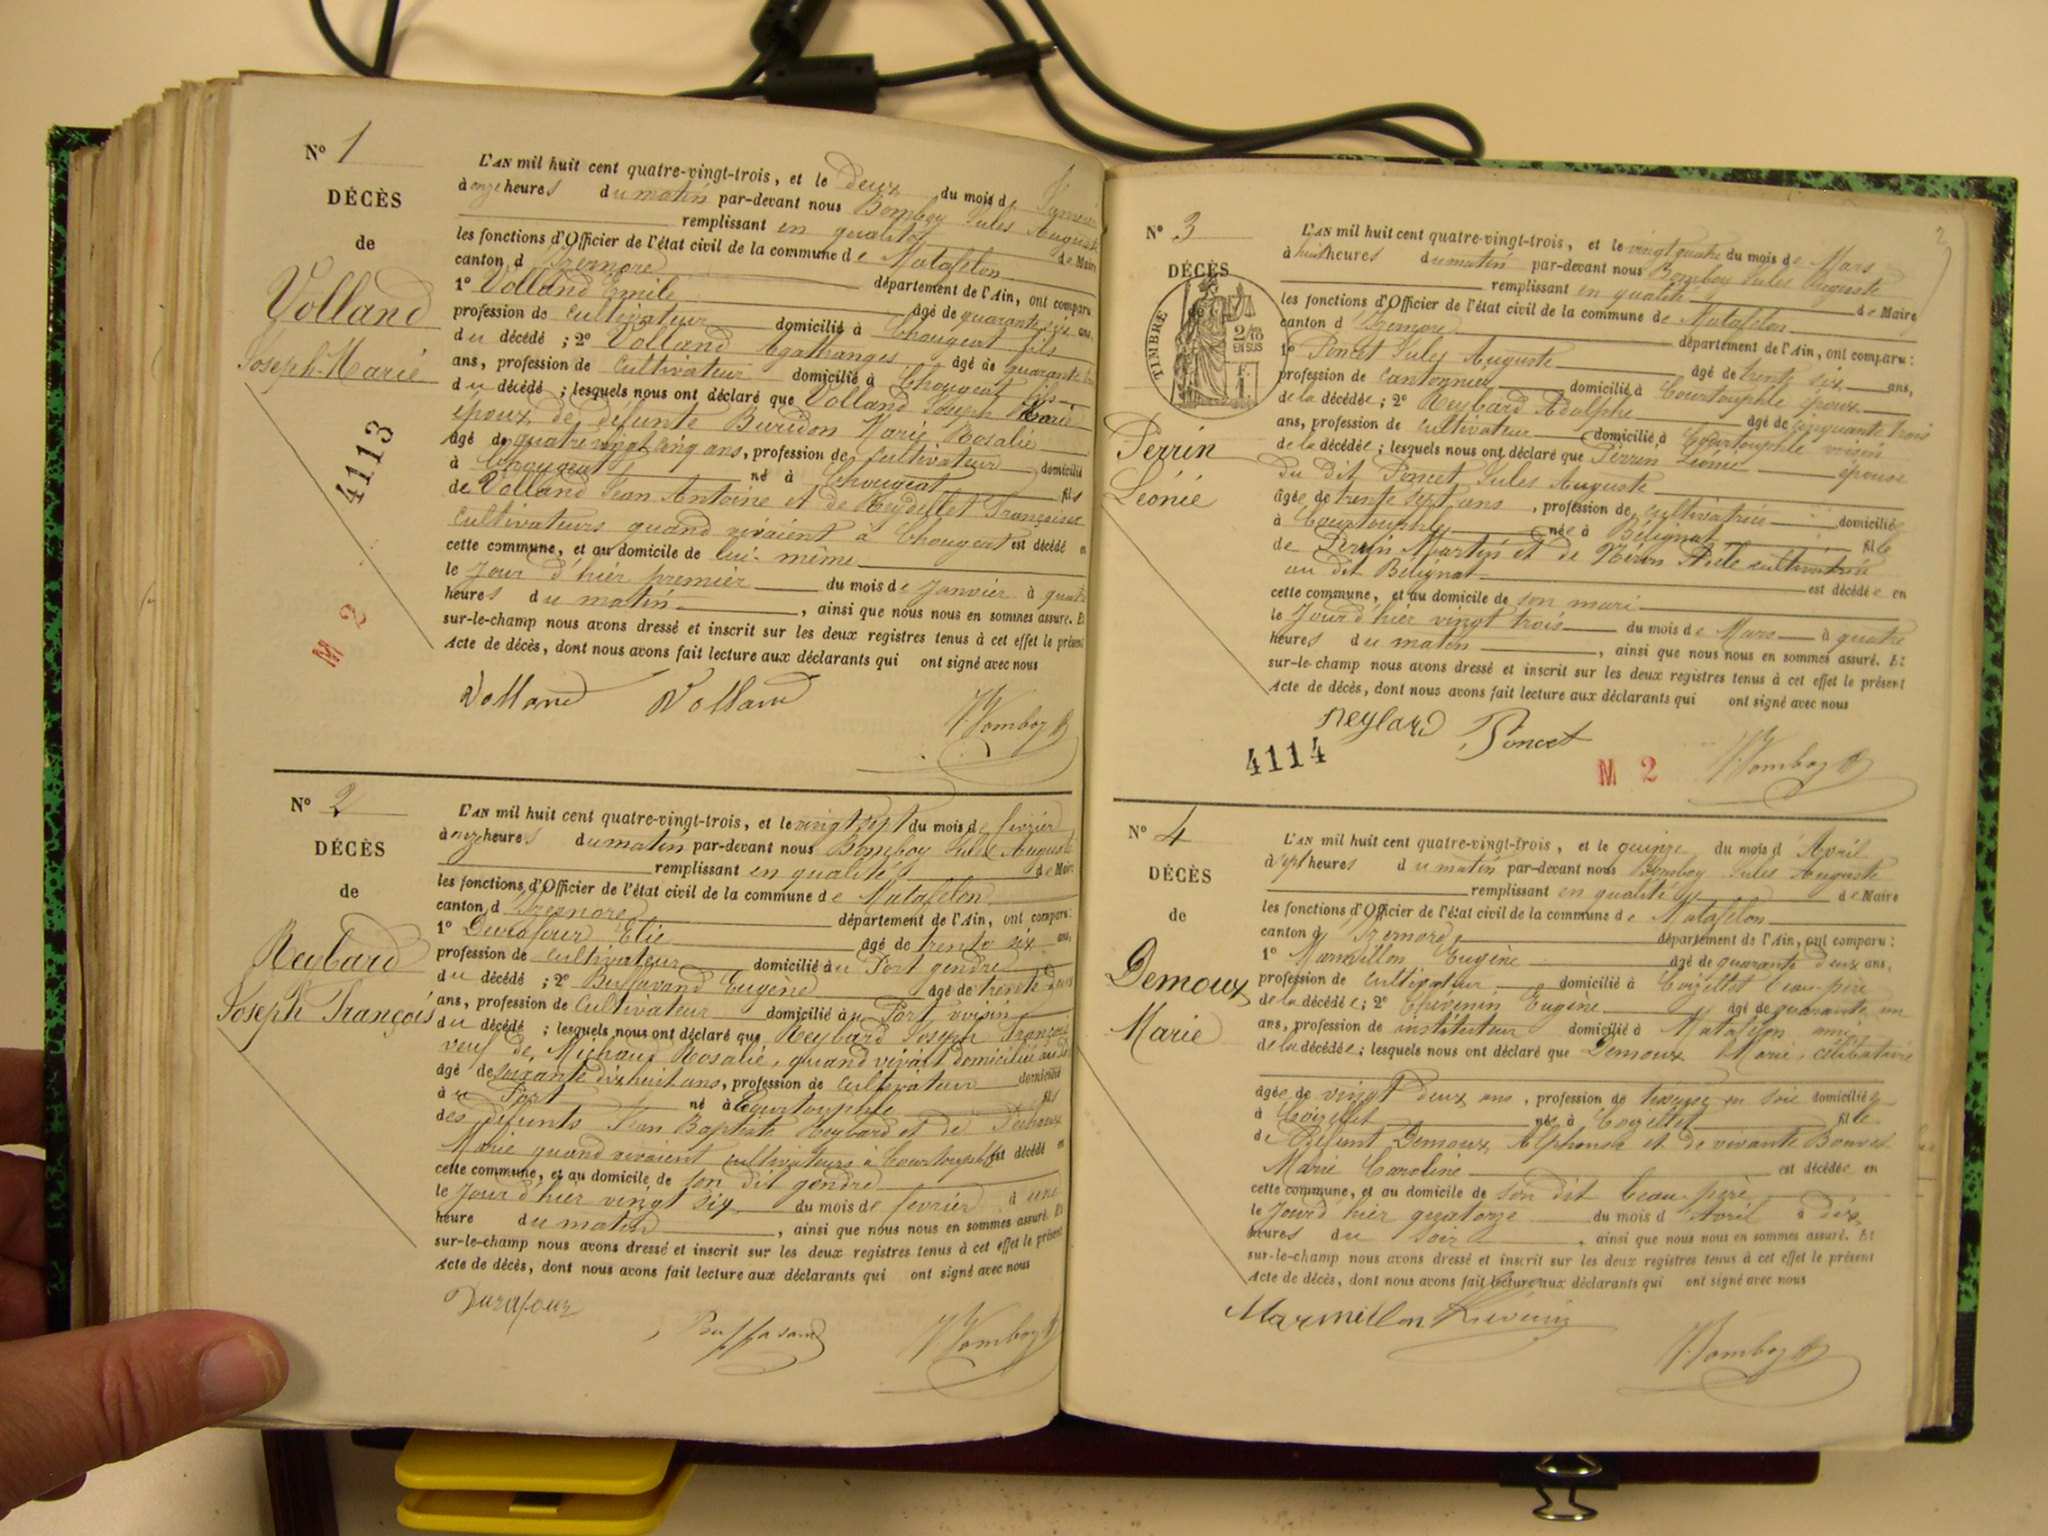 N° 1
DÉCÈS
de
Volland
Joseph-Marie
4113
M 2
L'AN mil huit cent quatre-vingt-trois, et le deux du mois de Janvier
à onze heures du matin par-devant nous Bomboy Jules Auguste
remplissant en qualité de Maire
les fonctions d'Officier de l'état civil de la commune de Matafelon
canton d'Izernore département de l'Ain, ont comparu
1° Volland Emile âgé de quarante six ans,
profession de cultivateur domicilié à Chougeat fils
du décédé ; 2° Volland Agathanges âgé de quarante
ans, profession de cultivateur domicilié à Chougeat fils
du décédé ; lesquels nous ont déclaré que Volland Joseph Marie
époux de défunte Buridon Marie Rosalie
âgé de quatre vingt cinq ans, profession de cultivateur domicilié
à Chougeat né à Chougeat fils
de Volland Jean Antoine et de Reydellet Françoise
cultivateurs quand vivaient à Chougeat est décédé en
cette commune, et au domicile de lui-même
le jour d'hier premier du mois de Janvier à quatre
heures du matin, ainsi que nous nous en sommes assuré. Et
sur-le-champ nous avons dressé et inscrit sur les deux registres tenus à cet effet le présent
Acte de décès, dont nous avons fait lecture aux déclarants qui ont signé avec nous
Volland Volland Bomboy
N° 2
DÉCÈS
de
Reybard
Joseph François
L'AN mil huit cent quatre-vingt-trois, et le vingt sept du mois de février
à onze heures du matin par-devant nous Bomboy Jules Auguste
remplissant en qualité de Maire
les fonctions d'Officier de l'état civil de la commune de Matafelon
canton d'Izernore département de l'Ain, ont comparu :
1° Durafour Elie âgé de trente six ans,
profession de cultivateur domicilié au Port gendre
du décédé ; 2° Buffavand Eugène âgé de trente deux
ans, profession de cultivateur domicilié au Port voisin
du décédé ; lesquels nous ont déclaré que Reybard Joseph François
veuf de Michaux Rosalie, quand vivait domiciliée au
âgé de soixante dix huit ans, profession de cultivateur domicilié
au Port né à Courtouphle fils
des défunts Jean Baptiste Reybard et de
Marie quand vivaient cultivateurs à Courtouphle est décédé en
cette commune, et au domicile de son dit gendre
le jour d'hier vingt six du mois de février à une
heure du matin, ainsi que nous nous en sommes assuré. Et
sur-le-champ nous avons dressé et inscrit sur les deux registres tenus à cet effet le présent
Acte de décès, dont nous avons fait lecture aux déclarants qui ont signé avec nous
Durafour Buffavand Bomboy
2
N° 3
DÉCÈS
TIMBRE
2/10
EN SUS
Perrin
Léonie
L'AN mil huit cent quatre-vingt-trois, et le vingt quatre du mois de Mars
à huit heures du matin par-devant nous Bomboy Jules Auguste
remplissant en qualité de Maire
les fonctions d'Officier de l'état civil de la commune de Matafelon
canton d'Izernore département de l'Ain, ont comparu :
1° Poncet Jules Auguste âgé de trente six ans,
profession de cantonnier domicilié à Courtouphle époux
de la décédée ; 2° Reybard Adolphe âgé de cinquante trois
ans, profession de cultivateur domicilié à Courtouphle voisin
de la décédée ; lesquels nous ont déclaré que Perrin Léonie épouse
du dit Poncet Jules Auguste
âgée de trente sept ans, profession de cultivatrice domiciliée
à Courtouphle née à Bélignat fille
de Perrin Martin et de
au dit Bélignat est décédée en
cette commune, et au domicile de son mari
le Jour d'hier vingt trois du mois de Mars à quatre
heures du matin, ainsi que nous nous en sommes assuré. Et
sur-le-champ nous avons dressé et inscrit sur les deux registres tenus à cet effet le présent
Acte de décès, dont nous avons fait lecture aux déclarants qui ont signé avec nous
Reybard Poncet Bomboy
4114
M 2
N° 4
DÉCÈS
de
Demoux
Marie
L'AN mil huit cent quatre-vingt-trois, et le quinze du mois d'Avril
à sept heures du matin par-devant nous Bomboy Jules Auguste
remplissant en qualité de Maire
les fonctions d'Officier de l'état civil de la commune de Matafelon
canton d'Izernore département de l'Ain, ont comparu :
1° Marmillon Eugène âgé de quarante deux ans,
profession de cultivateur domicilié à Coizellet beau-père
de la décédée ; 2° Thevenin Eugène âgé de quarante un
ans, profession de instituteur domicilié à Matafelon ami
de la décédée ; lesquels nous ont déclaré que Demoux Marie, célibataire
âgée de vingt deux ans, profession de tisseuse en soie domiciliée
à Coizellet née à Coizellet fille
de défunt Demoux Alphonse et de vivante Bouvet
Marie Caroline est décédée en
cette commune, et au domicile de son dit beau-père
le Jour d'hier quatorze du mois d'Avril à dix
heures du soir, ainsi que nous nous en sommes assuré. Et
sur-le-champ nous avons dressé et inscrit sur les deux registres tenus à cet effet le présent
Acte de décès, dont nous avons fait lecture aux déclarants qui ont signé avec nous
Marmillon Thévenin Bomboy